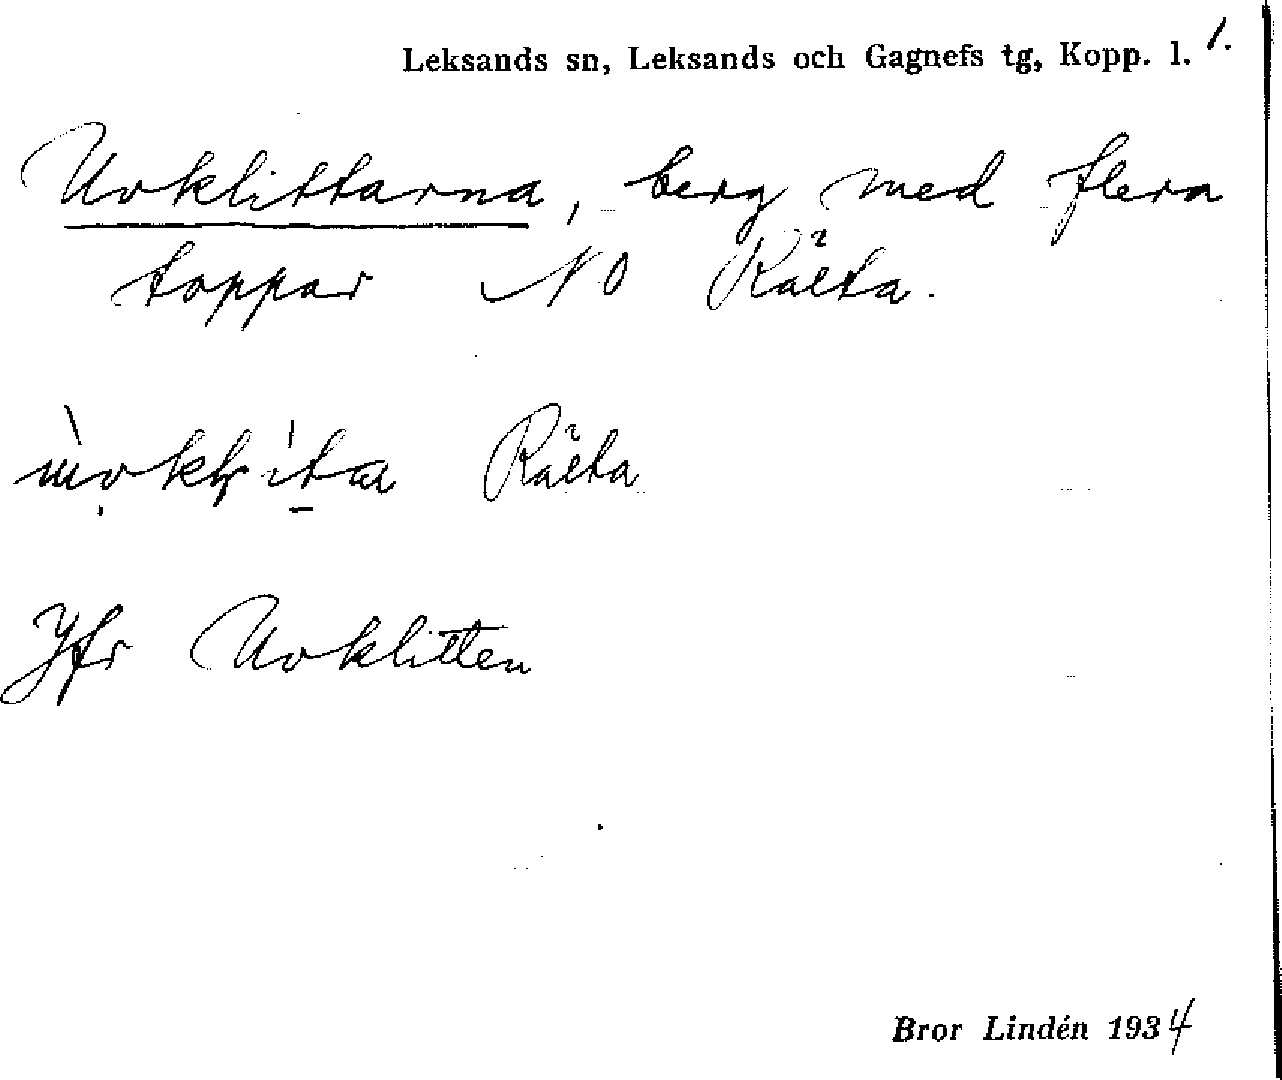 Leksands sn, Leksands och Gagnefs tg, Kopp. l. 1.
Uvklittarna, berg med flera
toppar NO Rälta.
Rälta
Jfr Uvklitten
Bror Lindén 1934